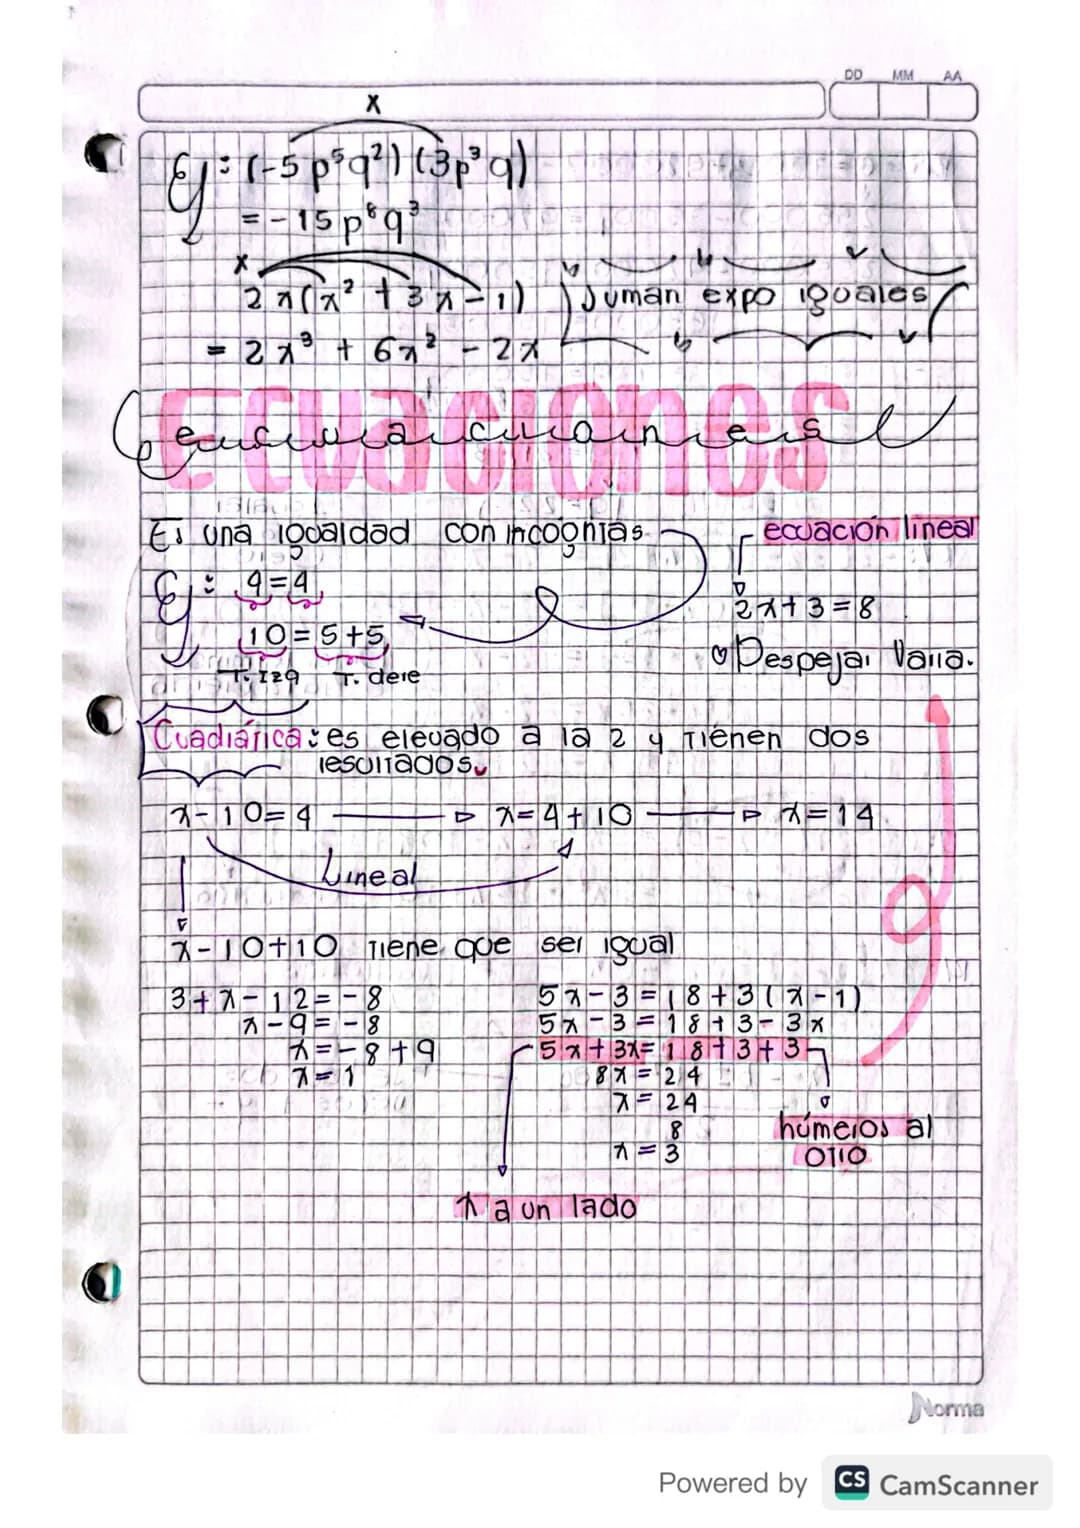 DD MM AA
x
Ej: (-5p⁵q²) (3p³q)
= -15p⁸q³
x
2x(x² + 3x - 1) Suman expo iguales
= 2x³ + 6x² - 2x
ECUACIONES
ecuaciones
Es una igualdad con incognitas. ecuación lineal
Ej: 4=4
2x+3=8
10=5+5
Despejar Varia.
T. Izq T. dere
Cuadrática: es elevado a la 2 y tienen dos
resultados.
x-10=4 x=4+10 x=14
Lineal
x-10+10 tiene que ser igual
3+x-12=-8 5x-3=18+3(x-1)
x-9=-8 5x-3=18+3-3x
x=-8+9 5x+3x=18+3+3
x=1 8x=24
x=24
8 números al
x=3 otro
x a un lado
Norma
Powered by CS CamScanner